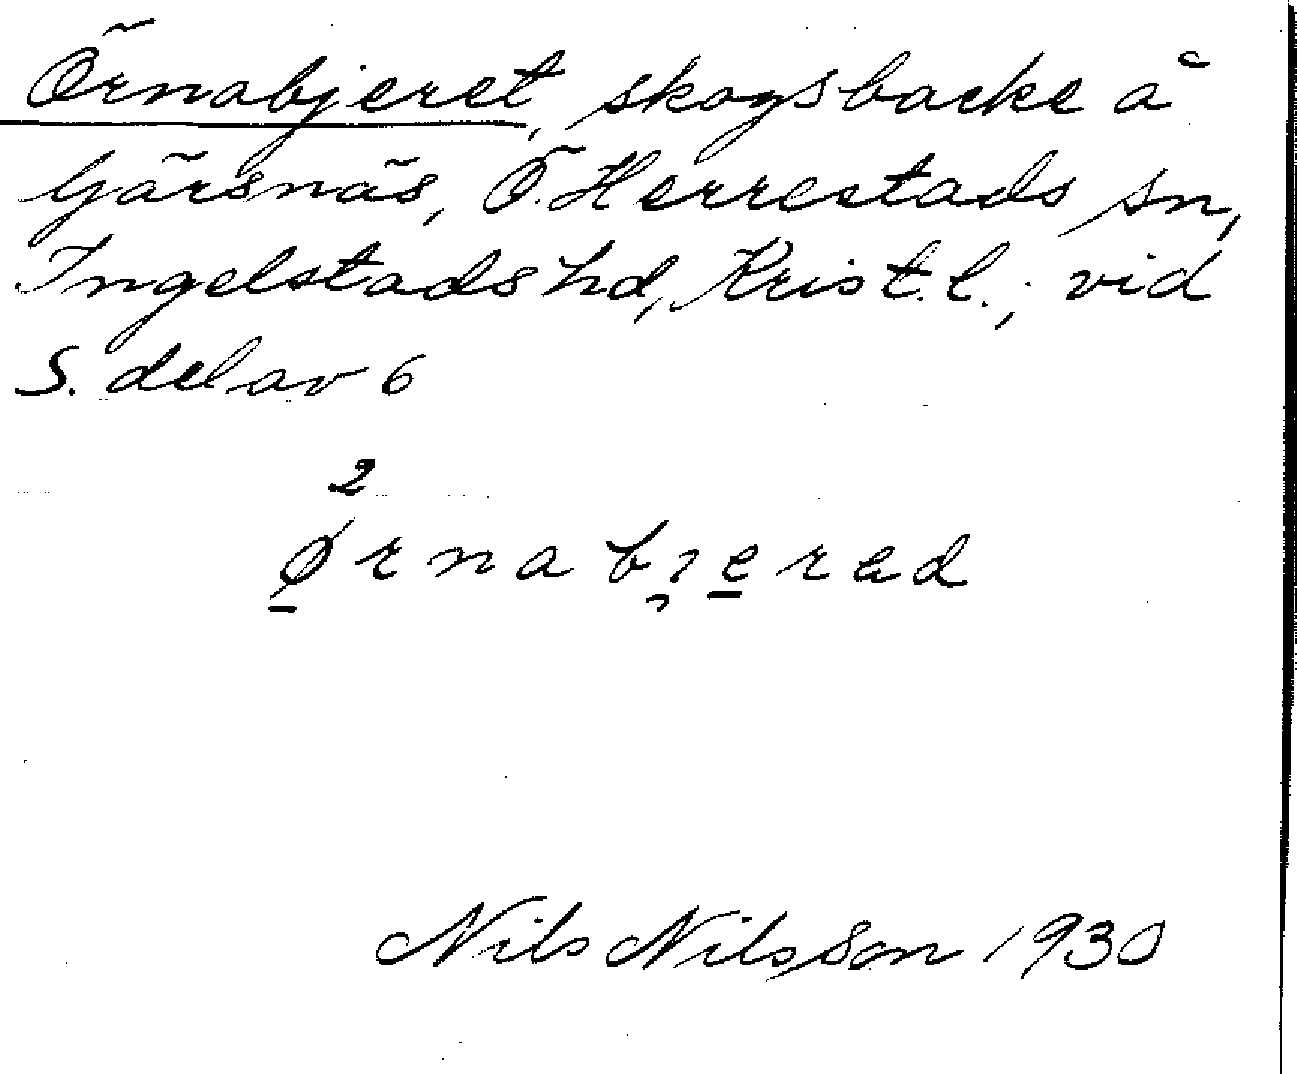 Örnabjeret, skogsbacke å
Gärsnäs, Ö. Herrestads sn,
Ingelstads hd, Krist. l.; vid
S. del av 6
2
Ørnabjerad
Nils Nilsson 1930